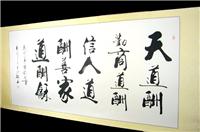 天道酬
勤商道酬
信人道
酬善家
道酬龢